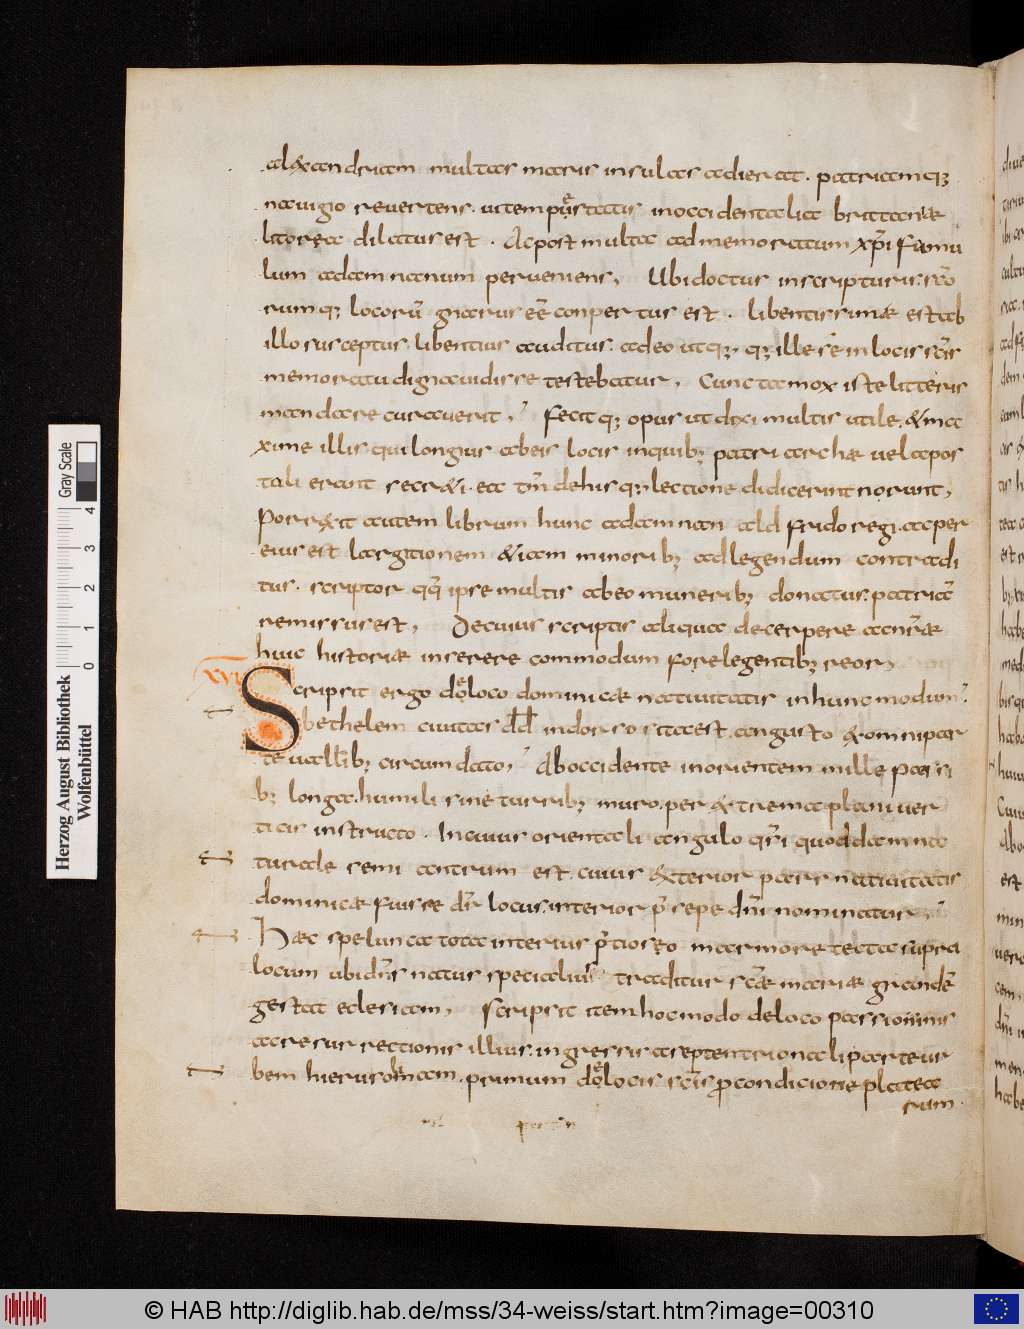 alexandriam multas maris insulas adierat. patriamq;
navigio revertens. vi tempestatis in occidentalia brittaniae
litorea dilatus est. Ac post multa ad memoratum xp̄i famu
lum adamnanum perveniens, Ubi doctus in scripturis. sc̄o
rumq; locorū gnarus eē̄ conpertus est. libentissimae est ab
illo susceptus. libentius auditus. adeo ut q; q; ille se in locis sc̄is
memoratu digna vidisse testebatur, Cuncta mox iste litteris
mandare curaverit, Fecitq; opus ut dixi multis utile. & ma
xime illis qui longius ab eis locis in quib; patriarchae vel apos
toli erant secreti. ea tm̄ de his q; lectione didicerint norunt,
Porrexit autem librum hunc adamnan aldfrido regi. ac per
eius est largitionem etiam minorib; ad legendum contradi
tus. scriptor qq̄ ipse multis ab eo munerib; donatus. patriā
remissus est, De cuius scriptis aliqua decerpere ac nr̄ae
huic historiae inserere commodum fore legentib; reor,
XVI
Scripsit ergo de loco dominicae nativitatis in hunc modum.
bethelem civitas dd̄ in dorso sita est. angusto & omni par
te vallib; circumdato, Ab occidente in orientem mille passi
b; longa. humili sine turrib; muro. per extrema plani ver
ticis instructo. In cuius orientali angulo qs̄i quoddam na
turale semi antrum est. cuius exterior pars nativitatis
dominicae fuisse dr̄ locus. interior p̄sepe dn̄i nominatur,
Haec spelunca tota interius p̄tioso marmore tecta supra
locum ubi dn̄s natus specialius traditur sc̄ae mariae grandē
gestat eclesiam, Scripsit item hoc modo de loco passionis
ac resurrectionis illius. ingressis a septentrionali parte ur
bem hierusolimam. primum de locis sc̄is pro condicione platea
rum.
Herzog August Bibliothek
Wolfenbüttel
Gray Scale
0 1 2 3 4
© HAB http://diglib.hab.de/mss/34-weiss/start.htm?image=00310